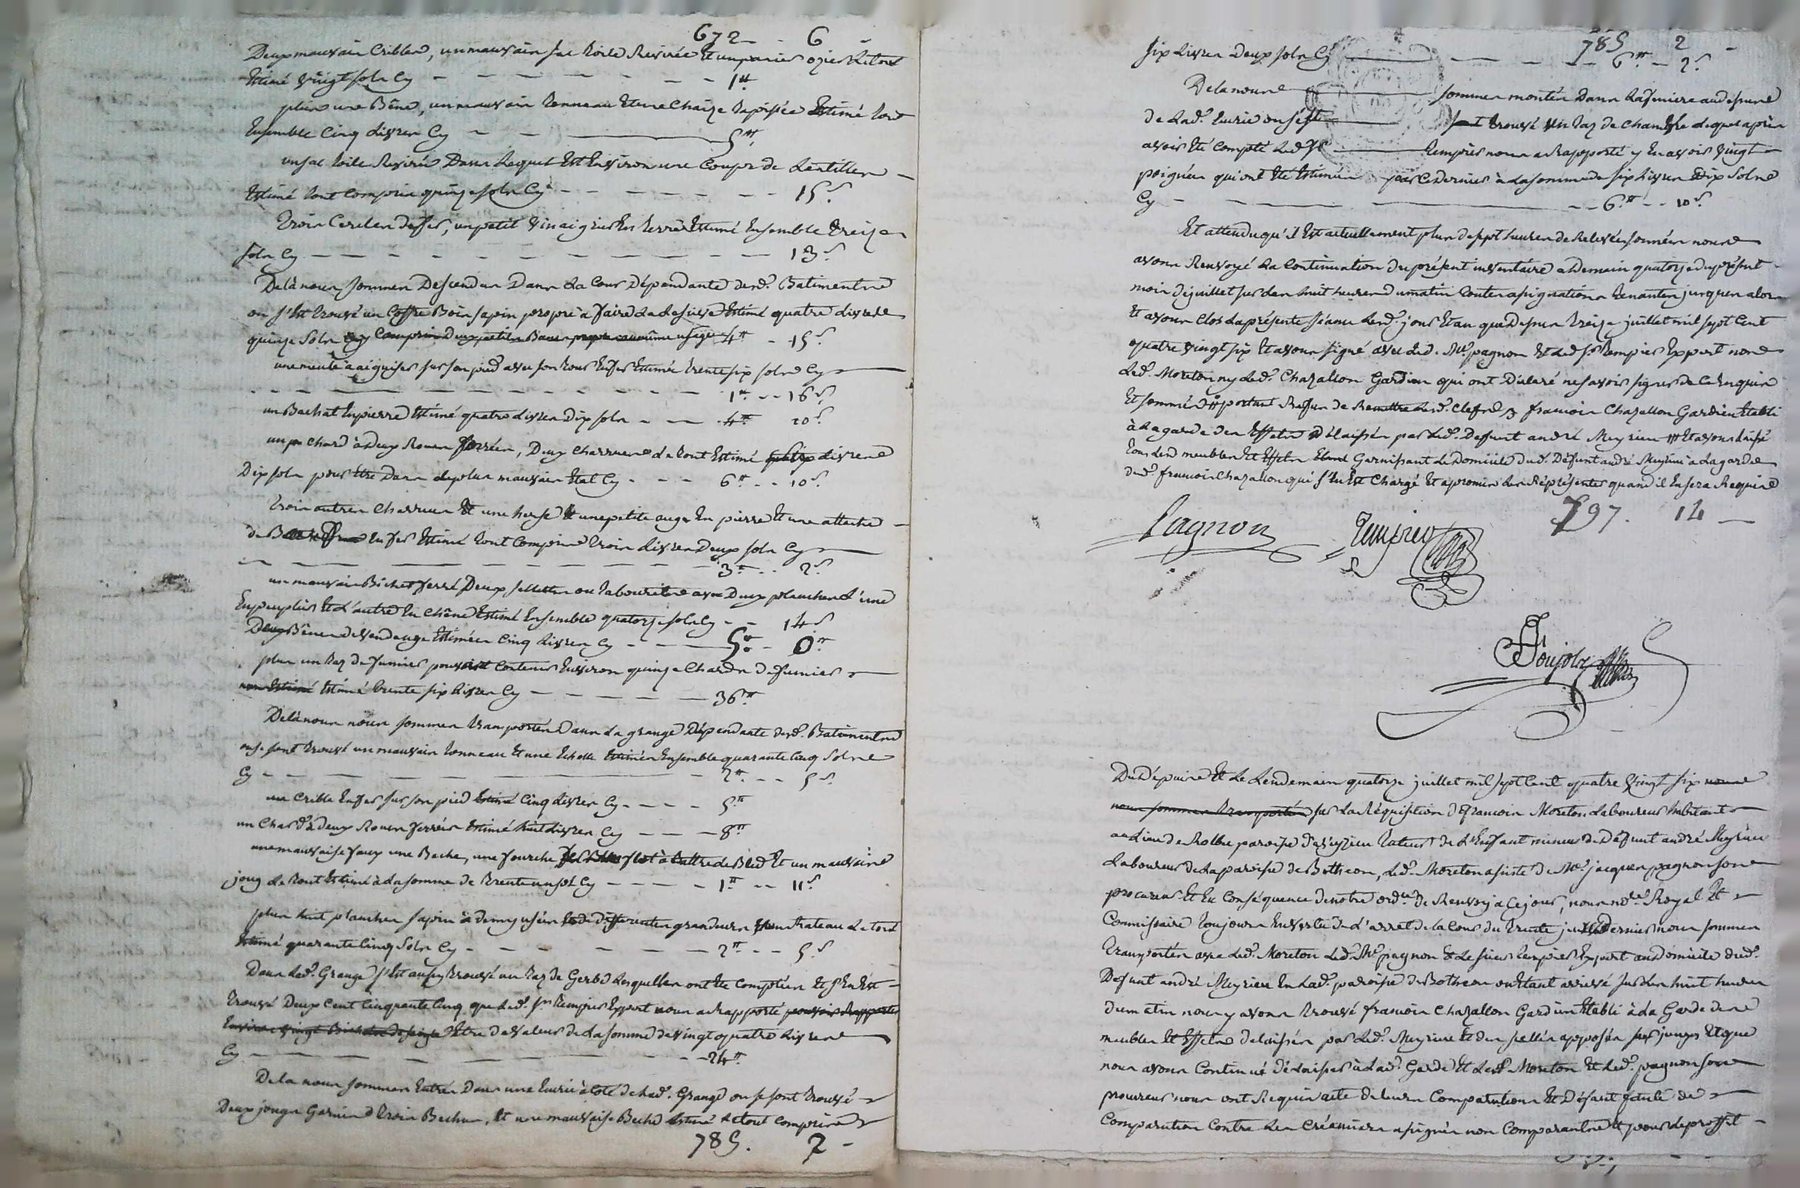 672 - - 6 -
Deux mauvais Cribles, un mauvais sac toile Revirée Et un panier ozier Le tout
Estimé vingt sols Cy - - - - - - - - 1ᵗᵗ
plus une Bêne, un mauvais Tonneau Et une Chaize Estimé tout
Ensemble Cinq Livres Cy - - 5ᵗᵗ
un sac toile Revirée Dans Lequel Est Environ une Coupe de Lentilles -
Estimé tout Compris quinze sols Cy - - - - - - 15 s
Trois Cercles de fer, un petit vinaigrier En terre Estimé Ensemble Treize
sols Cy - - - - - - - - - - 13 s
De là nous sommes Descendus Dans La Cour Dépendante desd. Batiments
où s'Est trouvé un Coffre Bois sapin propre à faire La Lessive Estimé quatre Livres
quinze Sols Cy 4ᵗᵗ - 15 s
une meule à aiguiser sur son pied avec son tour En fer Estimée trente six sols Cy
- - - - - - - - - 1ᵗᵗ - - 16 s
un Bachat En pierre Estimé quatre Livres Dix sols - - - 4ᵗᵗ 10 s
un Chard à deux Roues ferrées, Deux Charrues Le tout Estimé Livres
Dix sols pour Etre Dans de plus mauvais Etat Cy - - - 6ᵗᵗ - - 10 s
Trois autres Charrues Et une herse Et une petite auge En pierre Et une attache
En fer Estimé tout Compris Trois Livres Deux sols Cy
- - - - - - - - - 3ᵗᵗ - - 2 s
un mauvais Bichet ferré, Deux sellettes ou Tabourets avec Deux planches L'une
En peuplier Et L'autre En Chêne Estimé Ensemble quatorze sols Cy - - 14 s
Deux Bênes de vendange Estimées Cinq Livres Cy - - - 5ᵗᵗ - 0
plus un Taz de fumier pouvant Contenir Environ quinze Chards de fumier
Estimé trente six Livres Cy - - - - - - 36ᵗᵗ
De là nous nous sommes transportés Dans La grange Dépendante desd. Batiments
où se sont trouvé un mauvais tonneau Et une Echelle Estimés Ensemble quarante Cinq Sols
Cy - - - - - - - 2ᵗᵗ - - - 5 s
un Crible En fer sur son pied Estimé Cinq Livres Cy - - - - 5ᵗᵗ
un Chard à deux Roues ferrées Estimé huit Livres Cy - - - 8ᵗᵗ
une mauvaise faux une Beche, une fourche à Battre de Bled Et un mauvais
joug Le tout Estimé à La somme de Trente un sol Cy - - - - 1ᵗᵗ - - 11 s
plus huit planches sapin à demy usées de Differentes grandeurs Le tout
Estimé quarante Cinq Sols Cy - - - - - - 2ᵗᵗ - - 5 s
Dans Lad. Grange s'Est aussy trouvé un Taz de Gerbes Lesquelles ont Eté Comptées Et s'En Est
trouvé Deux Cent Cinquante Cinq que Led. sʳ Rempier Expert nous a Rapporté
Etre de valeur de La somme de vingt quatre Livres
Cy - - - - - - - - - - 24ᵗᵗ
De la nous sommes Entrés Dans une Ecurie à Coté de Lad. Grange où se sont trouvé
Deux jougs Garnis de trois Beches, Et une mauvaise Beche Estimé Le tout Compris
785. 2 -
785 2 -
six Livres Deux sols Cy - - - - 6ᵗᵗ - 2 s
De la nous sommes montés Dans La feniere au dessus
de Lad. Ecurie où s'est trouvé un Taz de Chanvre Lequel après
avoir Eté Compté Led. sʳ Rempier nous a Rapporté y En avoir vingt
poignées qui ont Eté Estimées par Ce Dernier à La somme de six Livres Dix Sols
Cy - - - - 6ᵗᵗ - - 10 s
Et attendu qu'il Est actuellement plus de sept heures de Relevée sonnées nous
avons Renvoyé La Continuation du présent inventaire a Demain quatorze du présent
mois de juillet sur Les huit heures du matin toutes assignations tenantes jusques alors
Et avons Clos La présente séance Led. jour Et an que Dessus Treize juillet mil sept Cent
quatre vingt six Et avons signé avec Led. Mᵉ pagnon Et Led. Sʳ Rempier Expert non
Led. Moreton ny Led. Chazallon Gardien qui ont Déclaré ne savoir signer de Ce Enquis
Et sommés françois Chazallon Gardien Etabli
à La garde des Effets Délaissés par Led. Deffunt andré Meyrieu Et avons Laissé
tous Les meubles Et Effets Garnissant Le Domicile dud. Défunt andré Meyrieu à La garde
dud. françois Chazallon qui s'En Est Chargé Et a promis Les Représenter quand il En sera Requis
797. 14 -
Pagnon Rempier
Du Dépuis Et Le Lendemain quatorze juillet mil sept Cent quatre vingt six
nous sommes transportés sur La Réquisition de françois Moreton Laboureur habitant
au Lieu de paroisse Tuteur de L'Enfant mineur de Défunt andré Meyrieu
Laboureur de La paroisse de Bothéon, Led. Moreton assisté de Mᵉ jacques pagnon son
procureur Et En Conséquence de notre ordᶜᵉ de Renvoy à Ce jour, nous noʳᵉ Royal Et
Commissaire Toujours En vertu de L'arret de La Cour du Trente dernier nous sommes
Transportés avec Led. Moreton Led. Mᵉ pagnon & Le sieur Rempier Expert au Domicile dud.
Défunt andré Meyrieu En Lad. paroisse de Bothéon où Etant arrivé sur Les huit heures
du matin nous y avons trouvé françois Chazallon Gardien Etabli à La Garde des
meubles Et Effets délaissés par Led. Meyrieu Et des scellés apposés Et que
nous avons Continué de Laisser à Lad. Garde Et Led. Moreton Et Led. pagnon son
procureur nous ont Requis acte de Leurs Comparutions Et Défaut faute de
Comparution Contre Les Créanciers assignés non Comparants Et pour Le proffit -